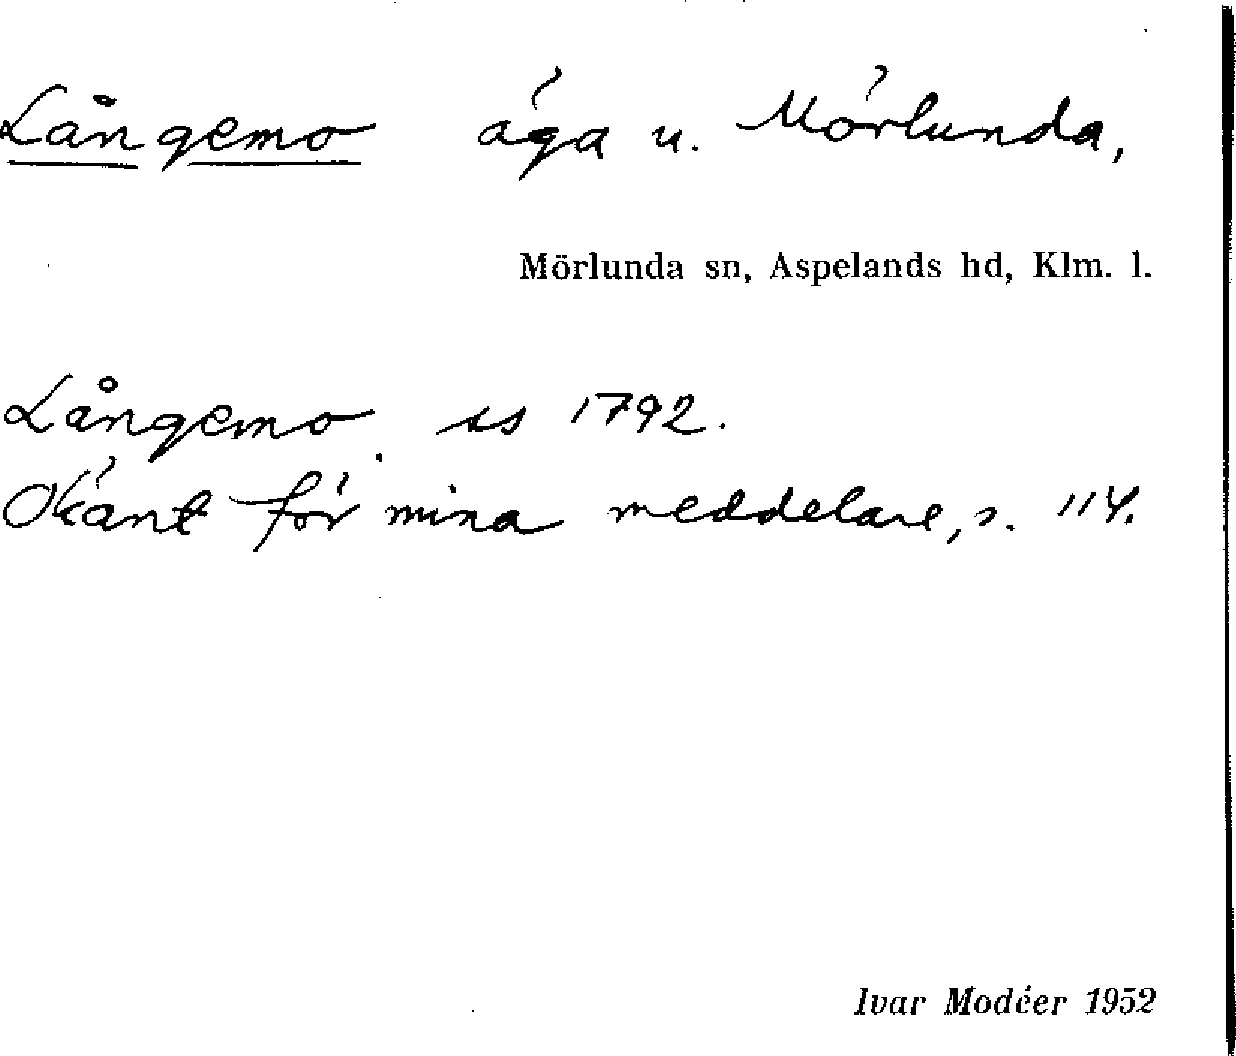 Långemo äga u. Mörlunda,
Mörlunda sn, Aspelands hd, Klm. l.
Långemo ss 1792.
Okänt för mina meddelare, s. 114.
Ivar Modéer 1952